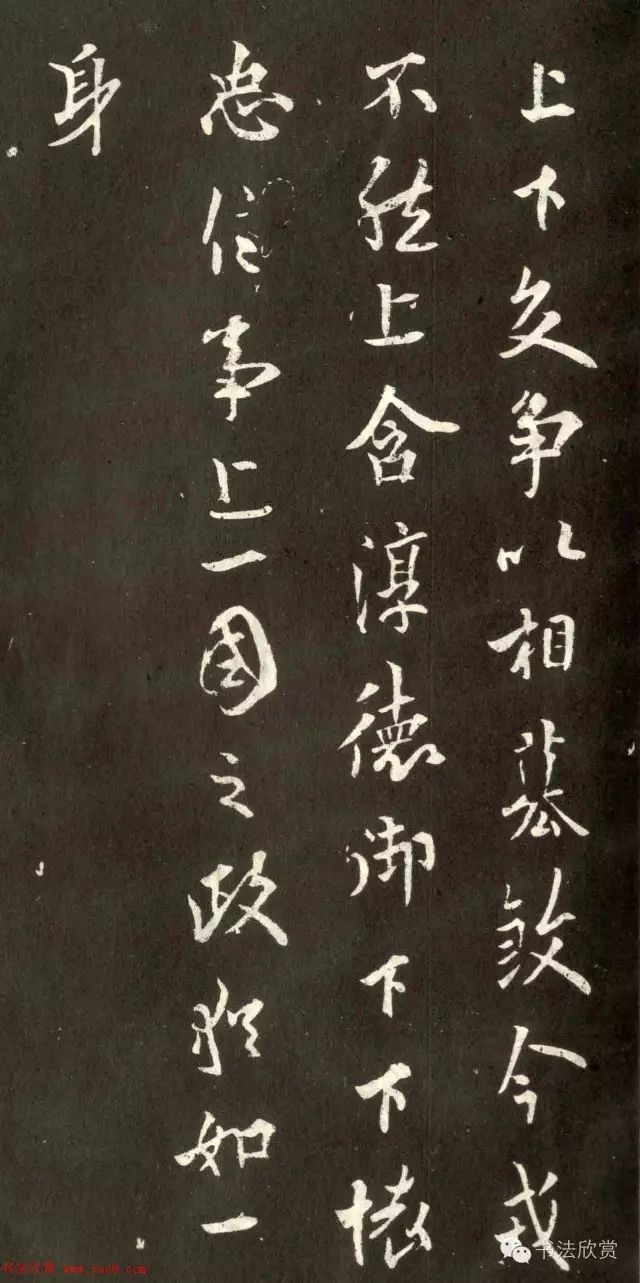 上下交争以相篡殺今戎
不然上含淳德御下下懷
忠信事上一國之政猶如一
身
书法欣赏
书法欣赏 www.yac8.com